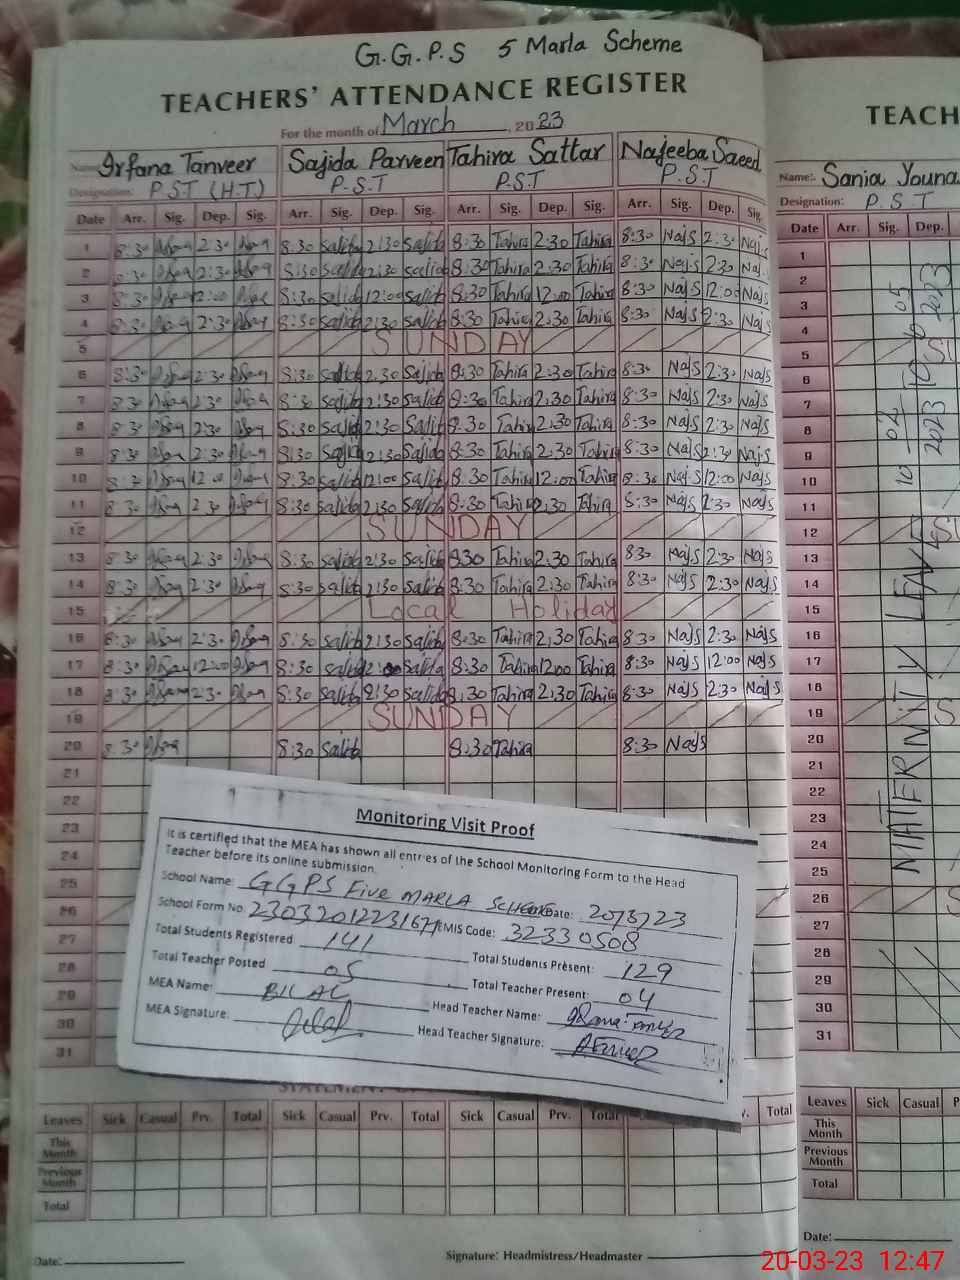 G.G.P.S 5 Marla Scheme
TEACHERS' ATTENDANCE REGISTER
For the month of March, 2023
Name: Irfana Tanveer Sajida Parveen Tahira Sattar Najeeba Saeed
Designation: P.S.T (H.T) P.S.T P.S.T P.S.T
Date Arr. Sig. Dep. Sig. Arr. Sig. Dep. Sig. Arr. Sig. Dep. Sig. Arr. Sig. Dep. Sig.
1 8:30 2:30 8:30 Sajida 2:30 Sajida 8:30 Tahira 2:30 Tahira 8:30 Najs 2:30 Najs
2 8:30 2:30 8:30 Sajida 2:30 Sajida 8:30 Tahira 2:30 Tahira 8:30 Najs 2:30 Najs
3 8:30 12:00 8:30 Sajida 12:00 Sajida 8:30 Tahira 12:00 Tahira 8:30 Najs 12:00 Najs
4 8:30 2:30 8:30 Sajida 2:30 Sajida 8:30 Tahira 2:30 Tahira 8:30 Najs 2:30 Najs
5 SUNDAY
6 8:30 2:30 8:30 Sajida 2:30 Sajida 8:30 Tahira 2:30 Tahira 8:30 Najs 2:30 Najs
7 8:30 2:30 8:30 Sajida 2:30 Sajida 8:30 Tahira 2:30 Tahira 8:30 Najs 2:30 Najs
8 8:30 2:30 8:30 Sajida 2:30 Sajida 8:30 Tahira 2:30 Tahira 8:30 Najs 2:30 Najs
9 8:30 2:30 8:30 Sajida 2:30 Sajida 8:30 Tahira 2:30 Tahira 8:30 Najs 2:30 Najs
10 8:30 12:00 8:30 Sajida 12:00 Sajida 8:30 Tahira 12:00 Tahira 8:30 Najs 12:00 Najs
11 8:30 2:30 8:30 Sajida 2:30 Sajida 8:30 Tahira 2:30 Tahira 8:30 Najs 2:30 Najs
12 SUNDAY
13 8:30 2:30 8:30 Sajida 2:30 Sajida 8:30 Tahira 2:30 Tahira 8:30 Najs 2:30 Najs
14 8:30 2:30 8:30 Sajida 2:30 Sajida 8:30 Tahira 2:30 Tahira 8:30 Najs 2:30 Najs
15 Local Holiday
16 8:30 2:30 8:30 Sajida 2:30 Sajida 8:30 Tahira 2:30 Tahira 8:30 Najs 2:30 Najs
17 8:30 12:00 8:30 Sajida 12:00 Sajida 8:30 Tahira 12:00 Tahira 8:30 Najs 12:00 Najs
18 8:30 2:30 8:30 Sajida 2:30 Sajida 8:30 Tahira 2:30 Tahira 8:30 Najs 2:30 Najs
19 SUNDAY
20 8:30 8:30 Sajida 8:30 Tahira 8:30 Najs
21
22
23
24
25
26
27
28
29
30
31
Monitoring Visit Proof
It is certified that the MEA has shown all entries of the School Monitoring Form to the Head
Teacher before its online submission.
School Name: GGPS Five MARLA SCHEME Date: 20/3/23
School Form No. EMIS Code: 32330508
Total Students Registered 141 Total Students Present: 129
Total Teacher Posted 05 Total Teacher Present: 04
MEA Name: BILAL Head Teacher Name: Irfana Tanveer
MEA Signature: Head Teacher Signature:
Leaves Sick Casual Prv. Total Sick Casual Prv. Total Sick Casual Prv. Total Total
This Month
Previous Month
Total
Date:
Signature: Headmistress/Headmaster
TEACH
Name: Sania Youna
Designation: P.S.T
Date Arr. Sig. Dep.
1
2
3
4
5
6
7
8
9
10
11
12
13
14
15
16
17
18
19
20
21
22
23
24
25
26
27
28
29
30
31
MATERNITY LEAVE
10 02 2023 To 10 05 2023
Leaves Sick Casual P
This Month
Previous Month
Total
Date:
20-03-23 12:47